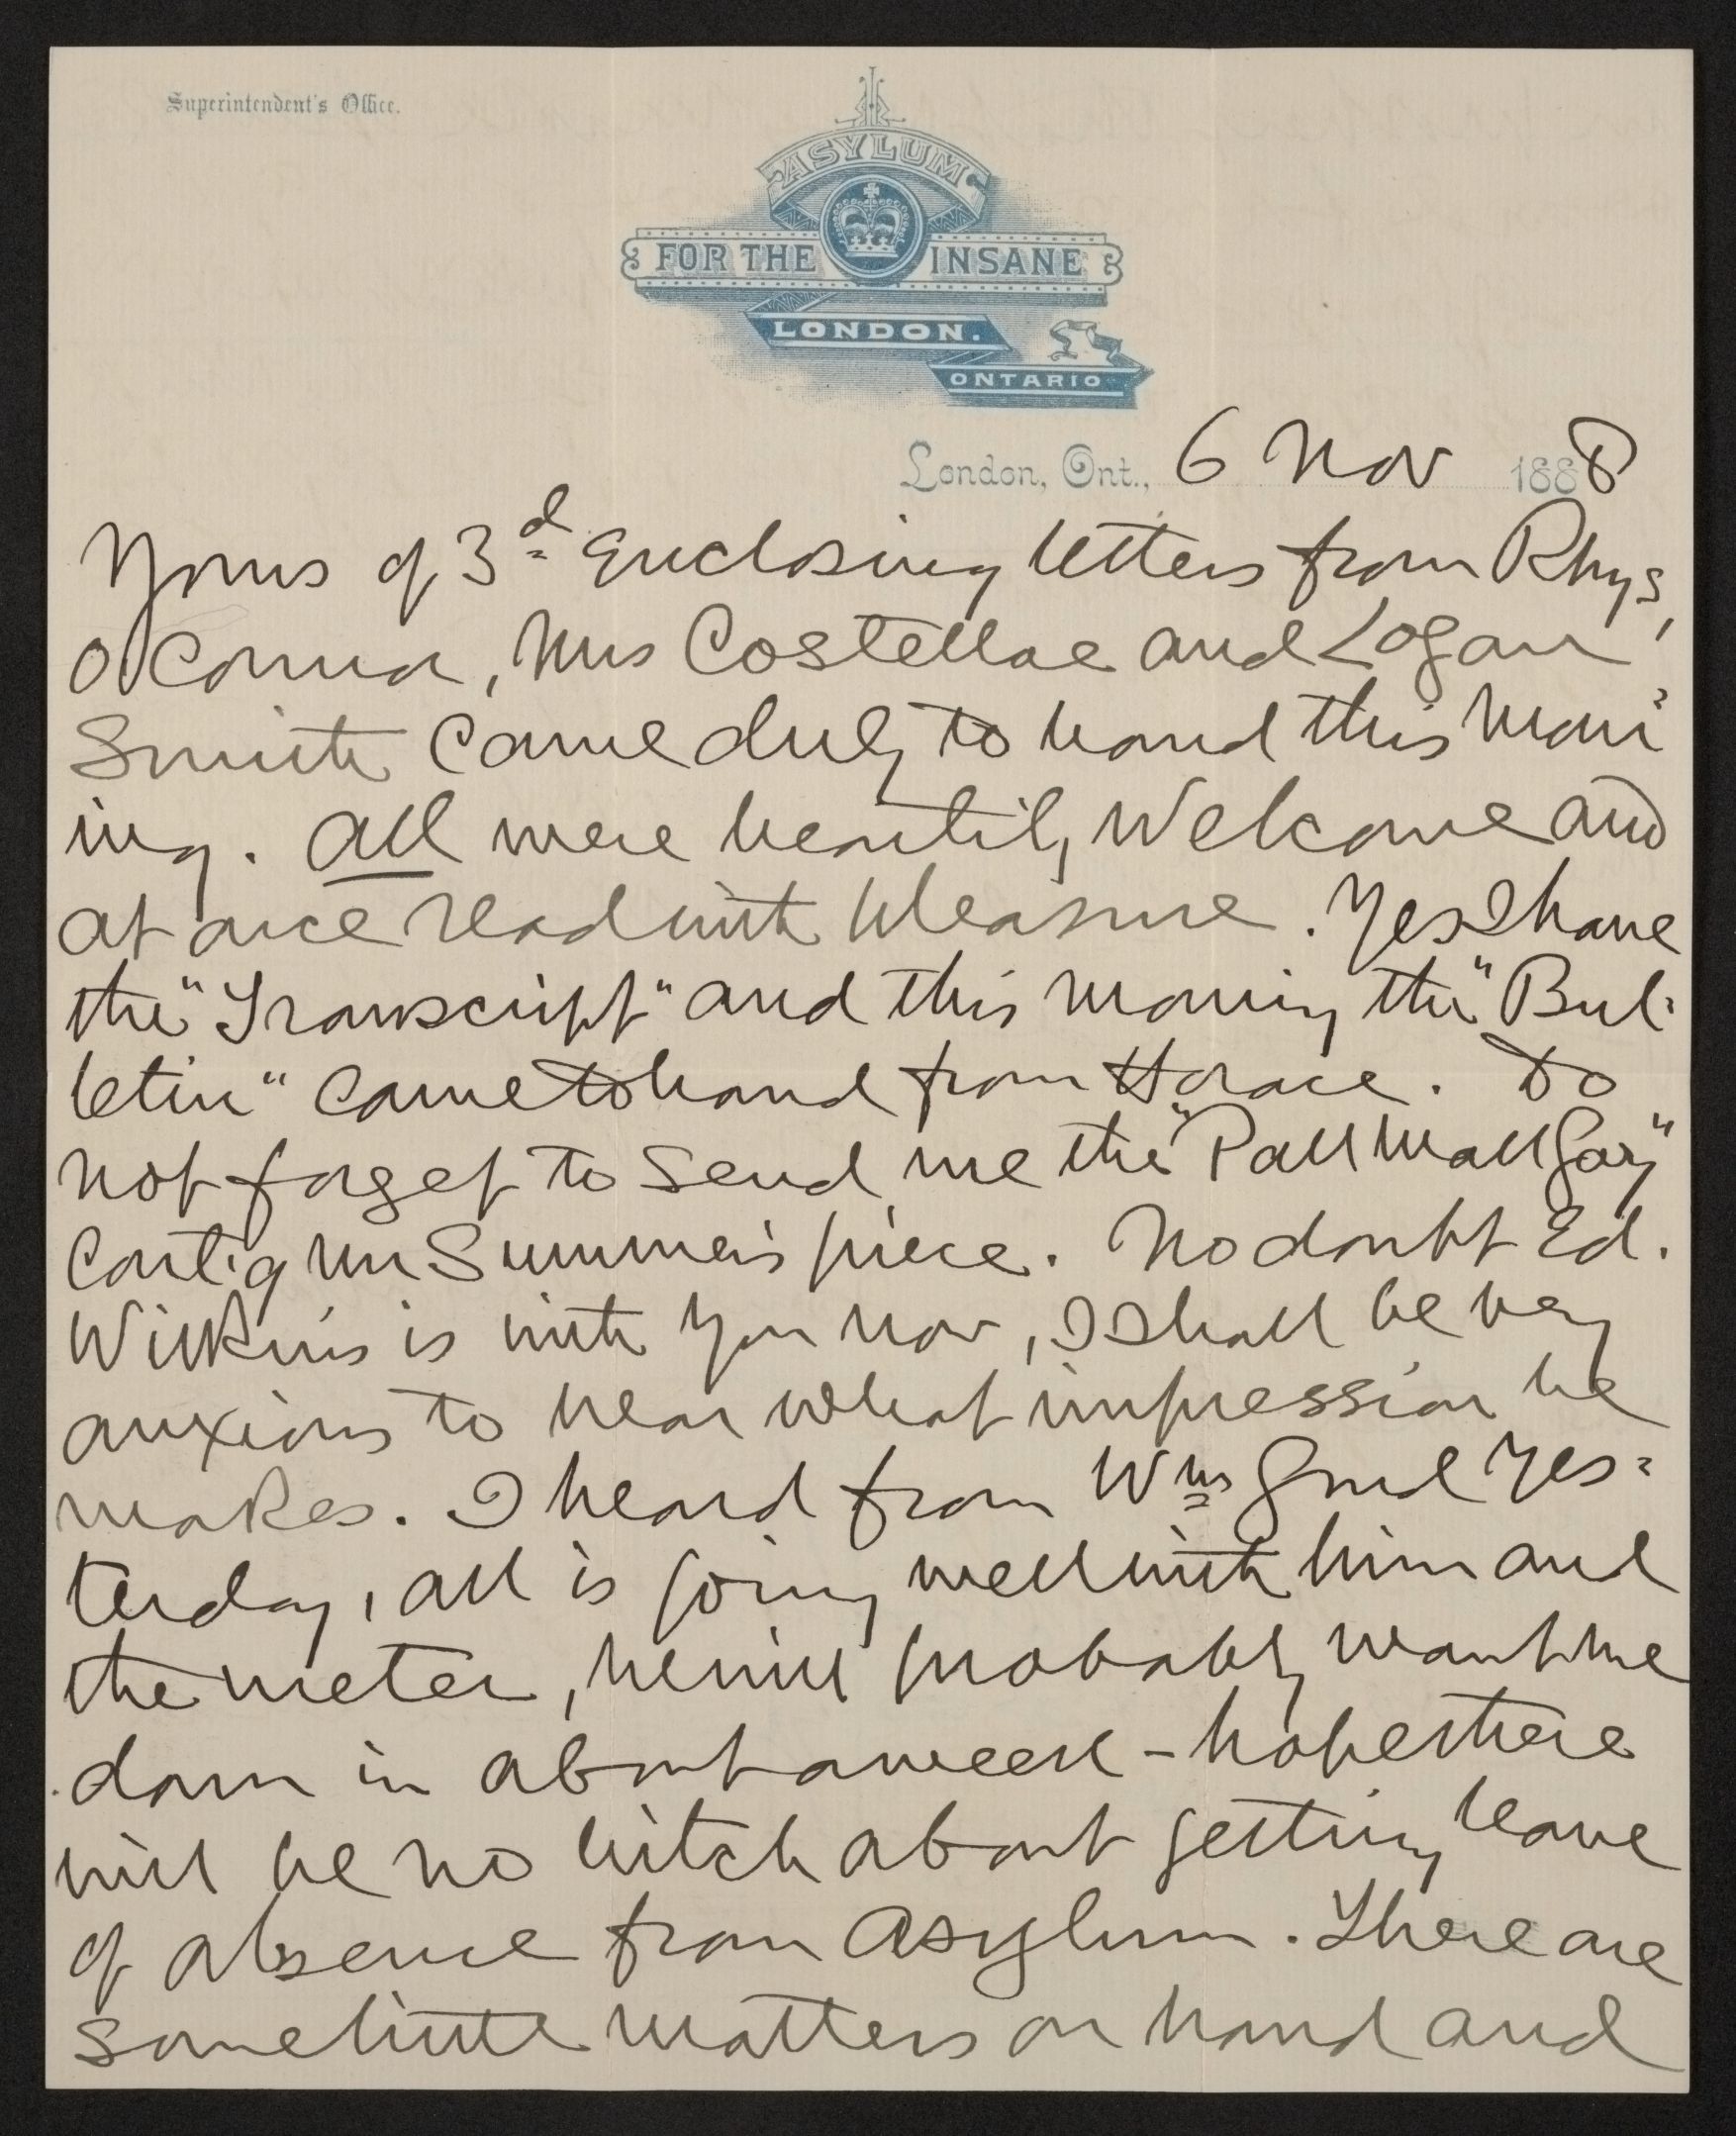 Superintendent's Office.
ASYLUM
FOR THE INSANE
LONDON.
ONTARIO
London, Ont., 6 Nov 1888
Yours of 3d enclosing letters from Rhys,
O'Connor, Mrs Costelloe and Logan
Smith came duly to hand this morn-
ing. All were heartily welcome and
at once read with pleasure. Yes I have
the "Transcript" and this morning the "Bul-
letin" came to hand from Horace. Do
not forget to send me the "Pall Mall Gaz"
Contig Mr Summer's piece. No doubt Ed.
Wilkins is with you now, I shall be very
anxious to hear what impression he
makes. I heard from Wm Gurd yes-
terday, all is going well with him and
the meter, he will probably want me
down in about a week - hope there
will be no hitch about getting leave
of absence from Asylum. There are
some little matters on hand and